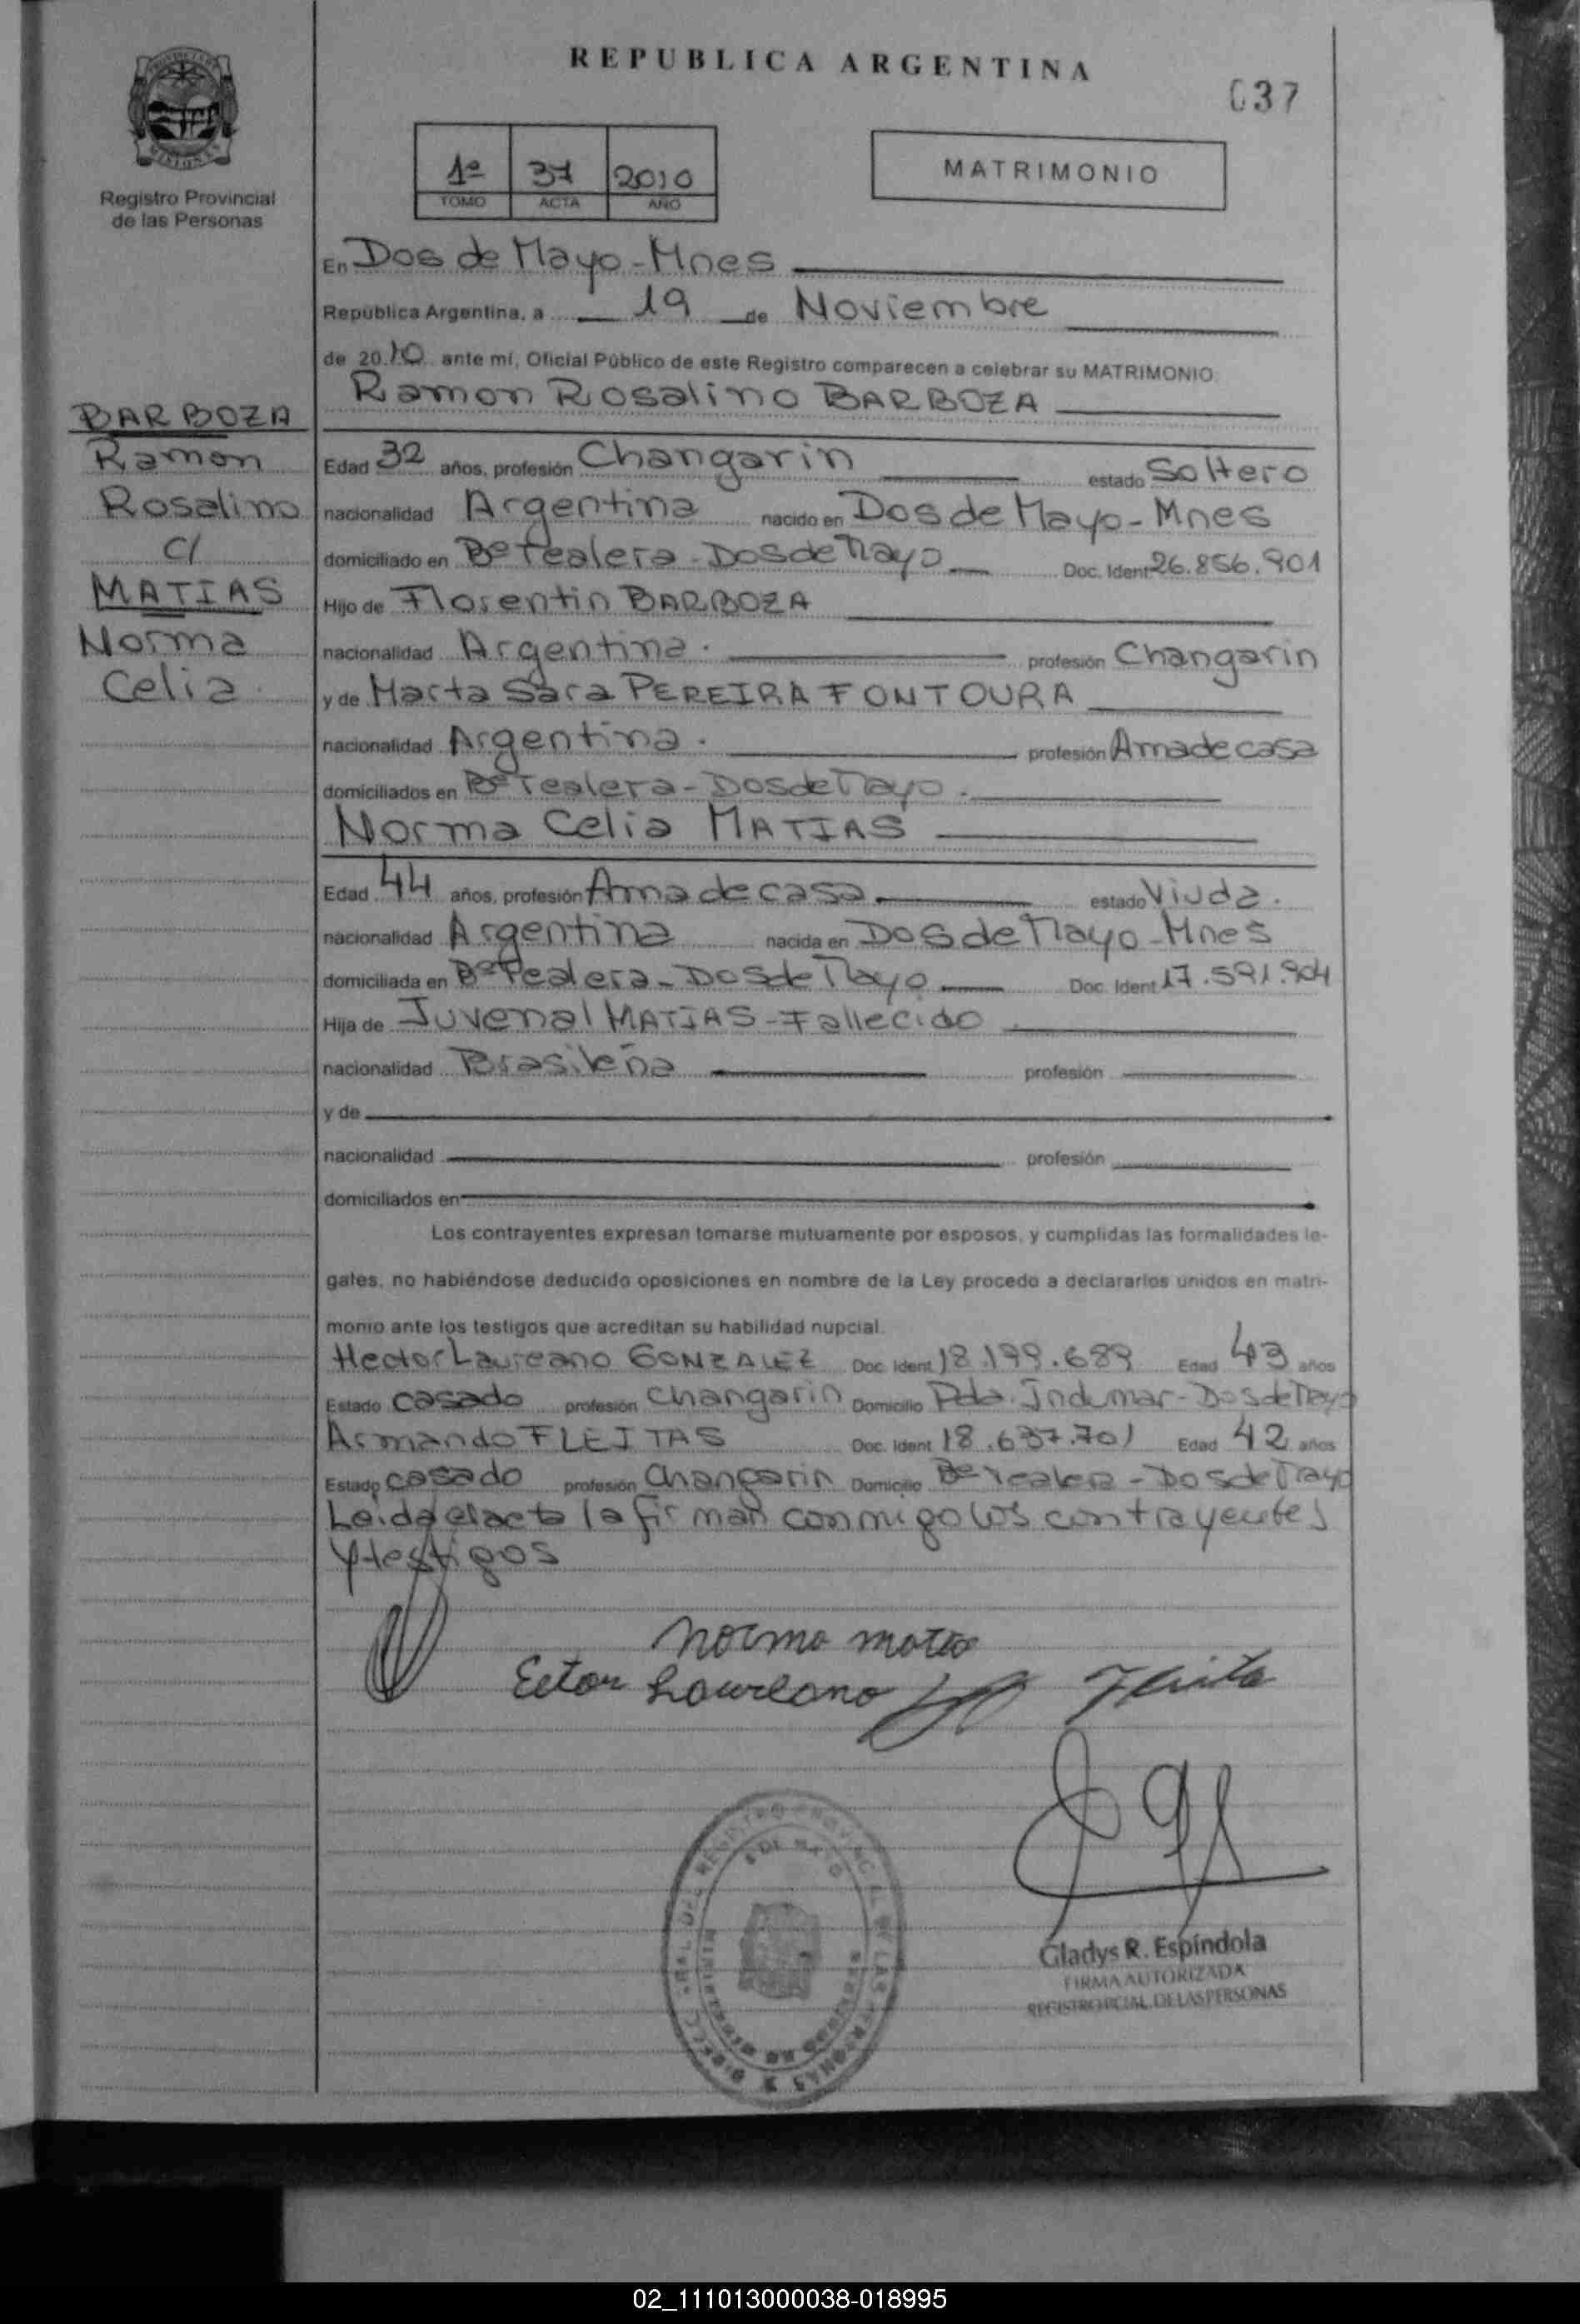 REPUBLICA ARGENTINA
037
Registro Provincial
de las Personas
1ª 37 2010
TOMO ACTA AÑO
MATRIMONIO
En Dos de Mayo - Mnes
República Argentina, a 19 de Noviembre
de 2010 ante mí, Oficial Público de este Registro comparecen a celebrar su MATRIMONIO
Ramon Rosalino BARBOZA
BARBOZA
Ramon
Rosalino
c/
MATIAS
Norma
Celia
Edad 32 años, profesión Changarin estado Soltero
nacionalidad Argentina nacido en Dos de Mayo - Mnes
domiciliado en Bº Tealera - Dos de Mayo Doc. Ident 26.856.901
Hijo de Florentin BARBOZA
nacionalidad Argentina. profesión Changarin
y de Marta Sara PEREIRA FONTOURA
nacionalidad Argentina. profesión Ama de casa
domiciliados en Bº Tealera - Dos de Mayo.
Norma Celia MATIAS
Edad 44 años, profesión Ama de casa estado Viuda.
nacionalidad Argentina nacida en Dos de Mayo - Mnes
domiciliada en Bº Tealera - Dos de Mayo Doc. Ident 17.591.904
Hija de Juvenal MATIAS - Fallecido
nacionalidad Brasileña profesión
y de
nacionalidad profesión
domiciliados en
Los contrayentes expresan tomarse mutuamente por esposos, y cumplidas las formalidades le-
gales, no habiéndose deducido oposiciones en nombre de la Ley procedo a declararlos unidos en matri-
monio ante los testigos que acreditan su habilidad nupcial.
Hector Laureano GONZALEZ Doc. Ident 18.199.689 Edad 43 años
Estado casado profesión Changarin Domicilio Pda. Indumar - Dos de Mayo
Armando FLEITAS Doc. Ident 18.637.701 Edad 42 años
Estado casado profesión Changarin Domicilio Bº Tealera - Dos de Mayo
Leida el acta la firman conmigo los contrayentes
y testigos
Norma matias
Ector Laureano
Gladys R. Espíndola
FIRMA AUTORIZADA
REGISTRO PCIAL. DE LAS PERSONAS
02_111013000038-018995